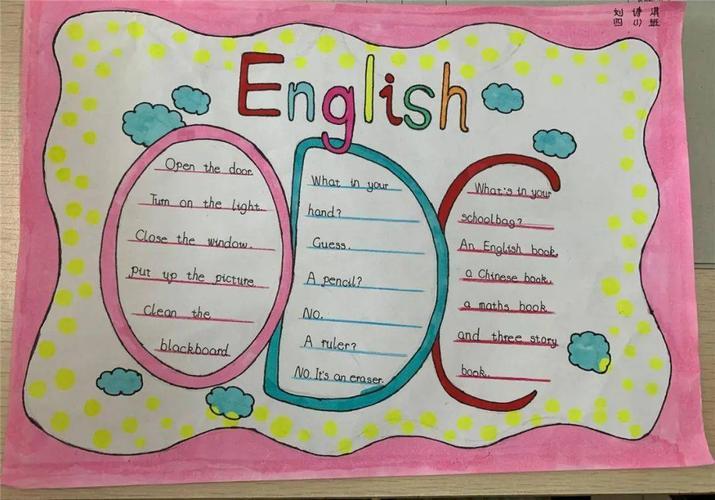 刘诗淇
四(1)班
English
Open the door.
Turn on the light.
Close the window.
put up the picture
Clean the
blackboard
What in your
hand?
Guess.
A pencil?
No.
A ruler?
No. It's an eraser.
What's in your
schoolbag?
An English book,
a Chinese book,
a maths book
and three story
book.